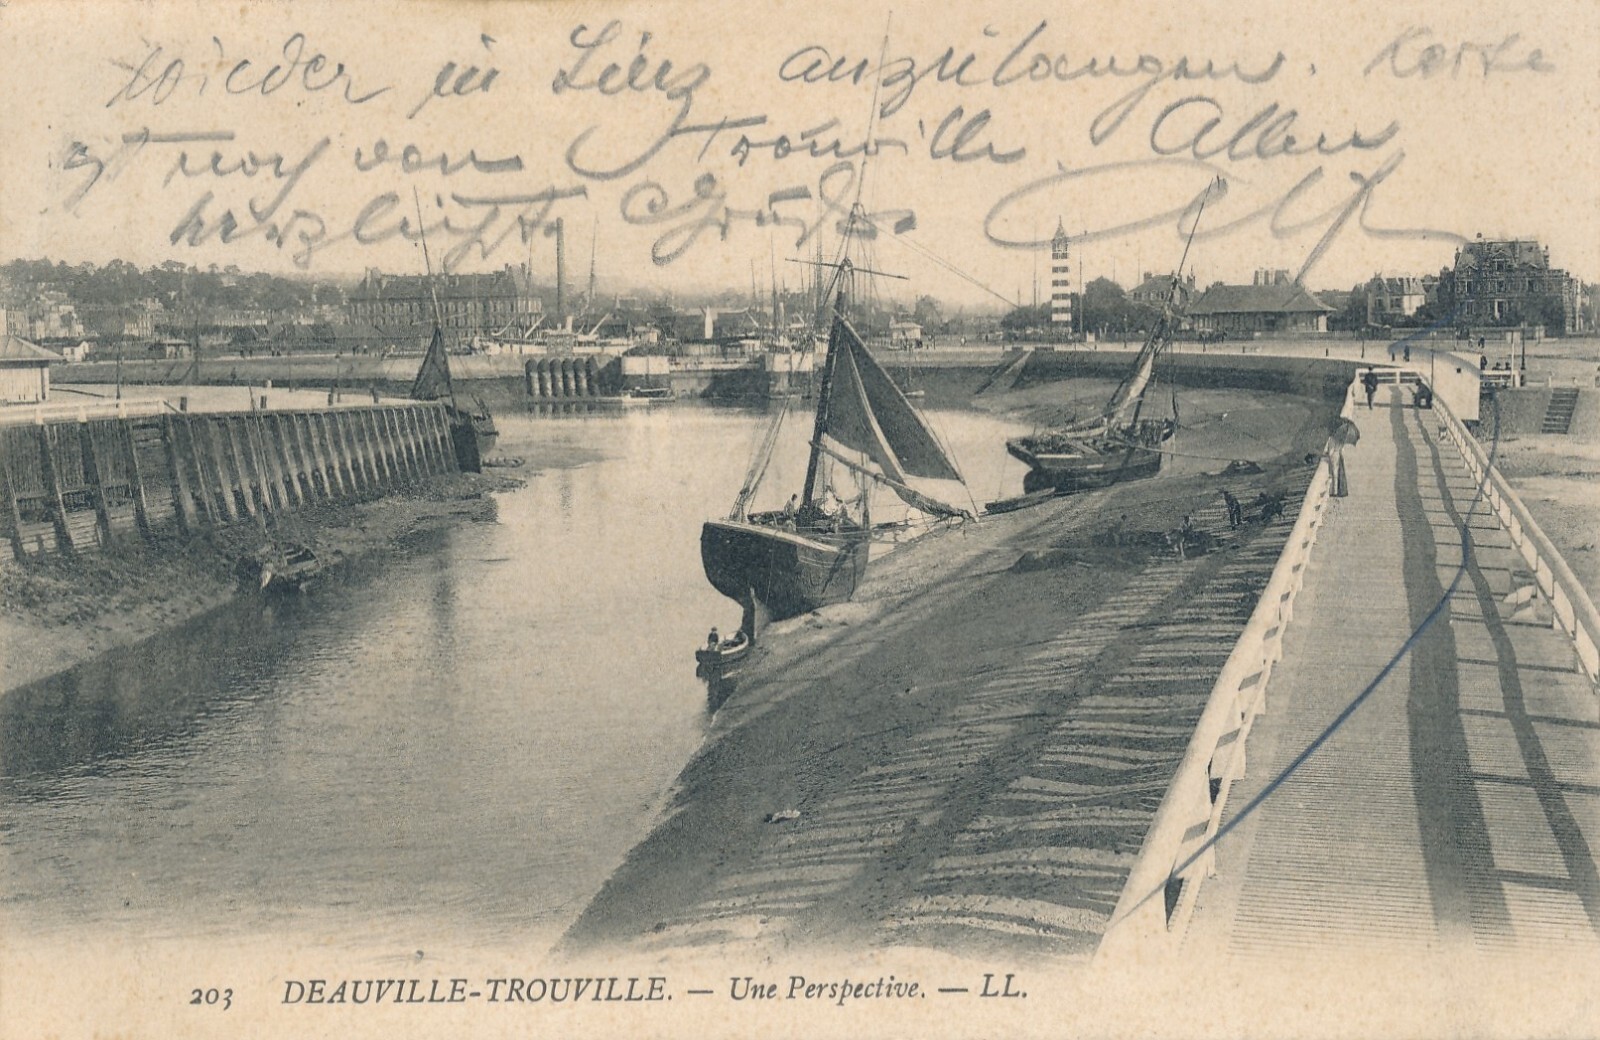 wieder in Linz anzulangen. Karte
ist noch von Trouville. Allen
herzlichste Grüße.
203 DEAUVILLE-TROUVILLE. — Une Perspective. — LL.